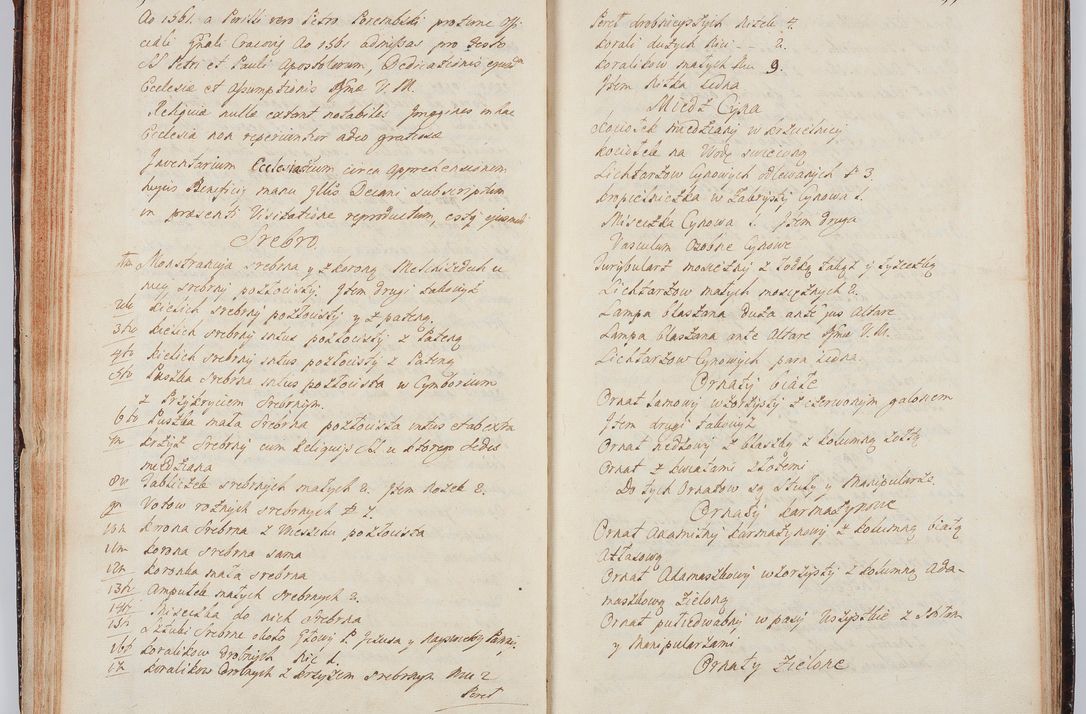 Ao 1561. a Poriski vero Petro Porembski protunc Offi
ciali Gnali Cracoviæ Ao 1561 admissas pro Festo
SS Petri et Pauli Apostolorum, Dedicationis ejusdem
Ecclesiæ et Assumptionis Bmæ V. M.
Reliquiæ nullæ extant notabiles Imagines in hac
Ecclesia non reperiuntur adeo gratiosæ
Inventarium Ecclesiasticum circa apprehensionem
hujus Beneficij manu Illris Decani subscriptum
in præsenti Visitatione reproductum, est ejusmodi
Srebro.
1mo Monstrancija srebrna y z koroną Melchizedech u
niey srebrny pozłocisty. Item drugi takowyż
2do Kielich srebrny pozłocisty y z pateną
3tio Kielich srebrny intus pozłocisty z Pateną
4to Kielich srebrny intus pozłocisty z Pateną
5to Puszka srebrna intus pozłocista w Cymborium
z Przykryciem srebrnym.
6to Puszka mała srebrna pozłocista intus et ab extra
7mo Krzyż srebrny cum Reliquijs SS u ktorego Sedes
miedziana
8vo Tabliczek srebrnych małych 2. Item Nożek 2.
9no Votow rożnych srebrnych N 7.
10mo Korona srebrna z Messinu pozłocista
11mo Korona srebrna sama
12mo Koronka mała srebrna
13tio Ampułek małych srebrnych 2.
14to Miseczka do nich srebrna
15to Sztuki srebrne około Głowy P. Jezusa y Nayswiętszey Panny.
16to Koralikow drobnych Nić 1.
17 Koralikow drobnych z krzyżem srebrnym Nru 2
Pereł
Pereł drobnieyszych Nitek 4.
Korali dużych Nici -- 2.
Koralikow małych Nru 9.
Item Nitka Jedna
Miedź Cyna
Kociołek miedziany w Krzcielnicy
Kociołek na Wodę swięconą
Lichtarzow Cynowych odlewanych P 3.
Kropielniczka w Zakrystij Cynowa 1.
Miseczka Cynowa 1. Item druga
Vasculum ozobne Cynowe
Turibularz mosiężny z Łodką takąż y Łyżeczką
Lichtarzow małych mosiężnych 2.
Lampa blaszana Duża ante jus Altare
Lampa blaszana ante Altare Bmæ V. M.
Lichtarzow Cynowych para Jedna.
Ornaty białe
Ornat Lamowy wzorzysty z czerwonym galonem
Item drugi takowyż
Ornat z blaszky z kolumną żołtą
Ornat z kwiatami złotemi
Do tych Ornatow są Stuły y Manipularze
Ornaty karmazynowe
Ornat Axamitny karmazynowy z kolumną białą
Atłasową
Ornat Adamaszkowy wzorzysty z kolumną ada-
maszkową zieloną
Ornat pułiedwabny w pasy wszystkie z Stołam
y Manipularzami
Ornaty zielone